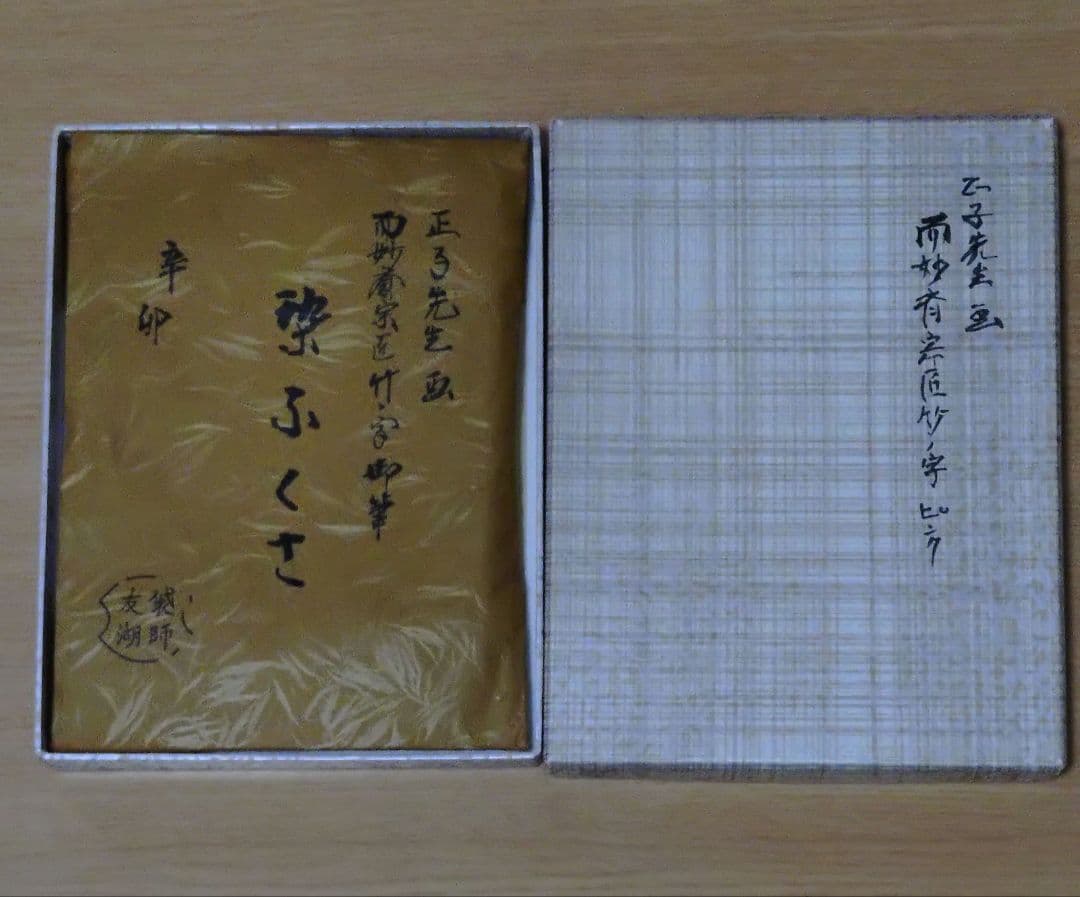 正子先生画
而妙斎宗匠竹ノ字御筆
染ふくさ
辛卯
袋師
友湖
正子先生画
而妙斎宗匠竹ノ字